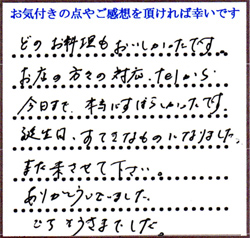 お気付きの点やご感想を頂ければ幸いです
どのお料理もおいしかったです。
お店の方々の対応、telから
今日まで、本当にすばらしかったです。
誕生日、すてきなものになりました。
また来させて下さい。
ありがとうございました。
ごちそうさまでした。